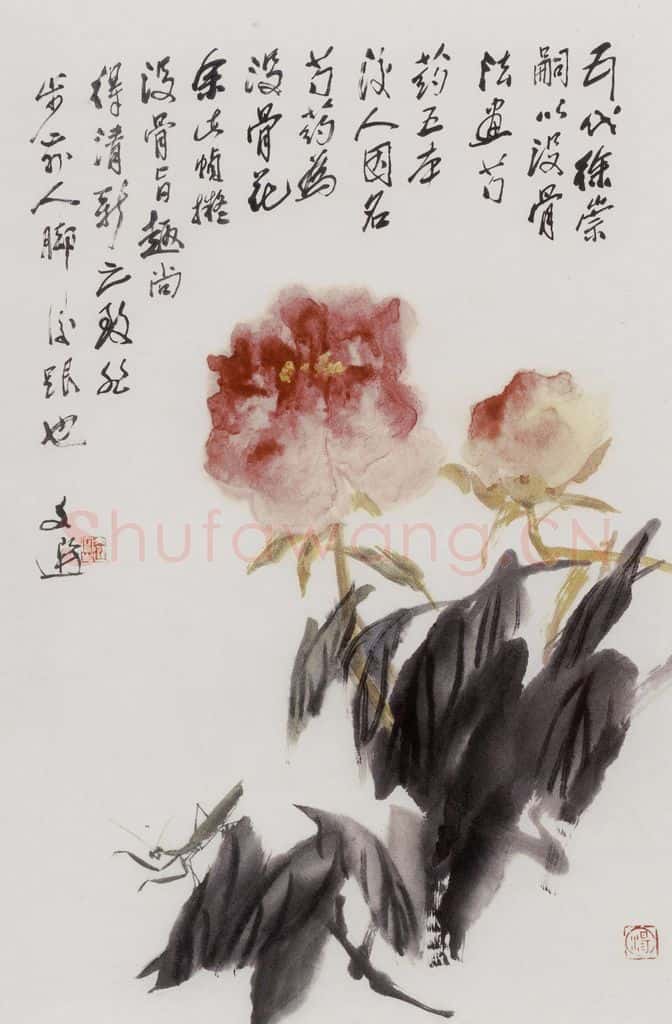 五代徐崇
嗣以没骨
法畫芍
葯五本
後人因名
芍葯為
没骨花
余此幀擬
没骨旨趣尚
得清新之致然
步前人脚後跟也
Shufawang.CN